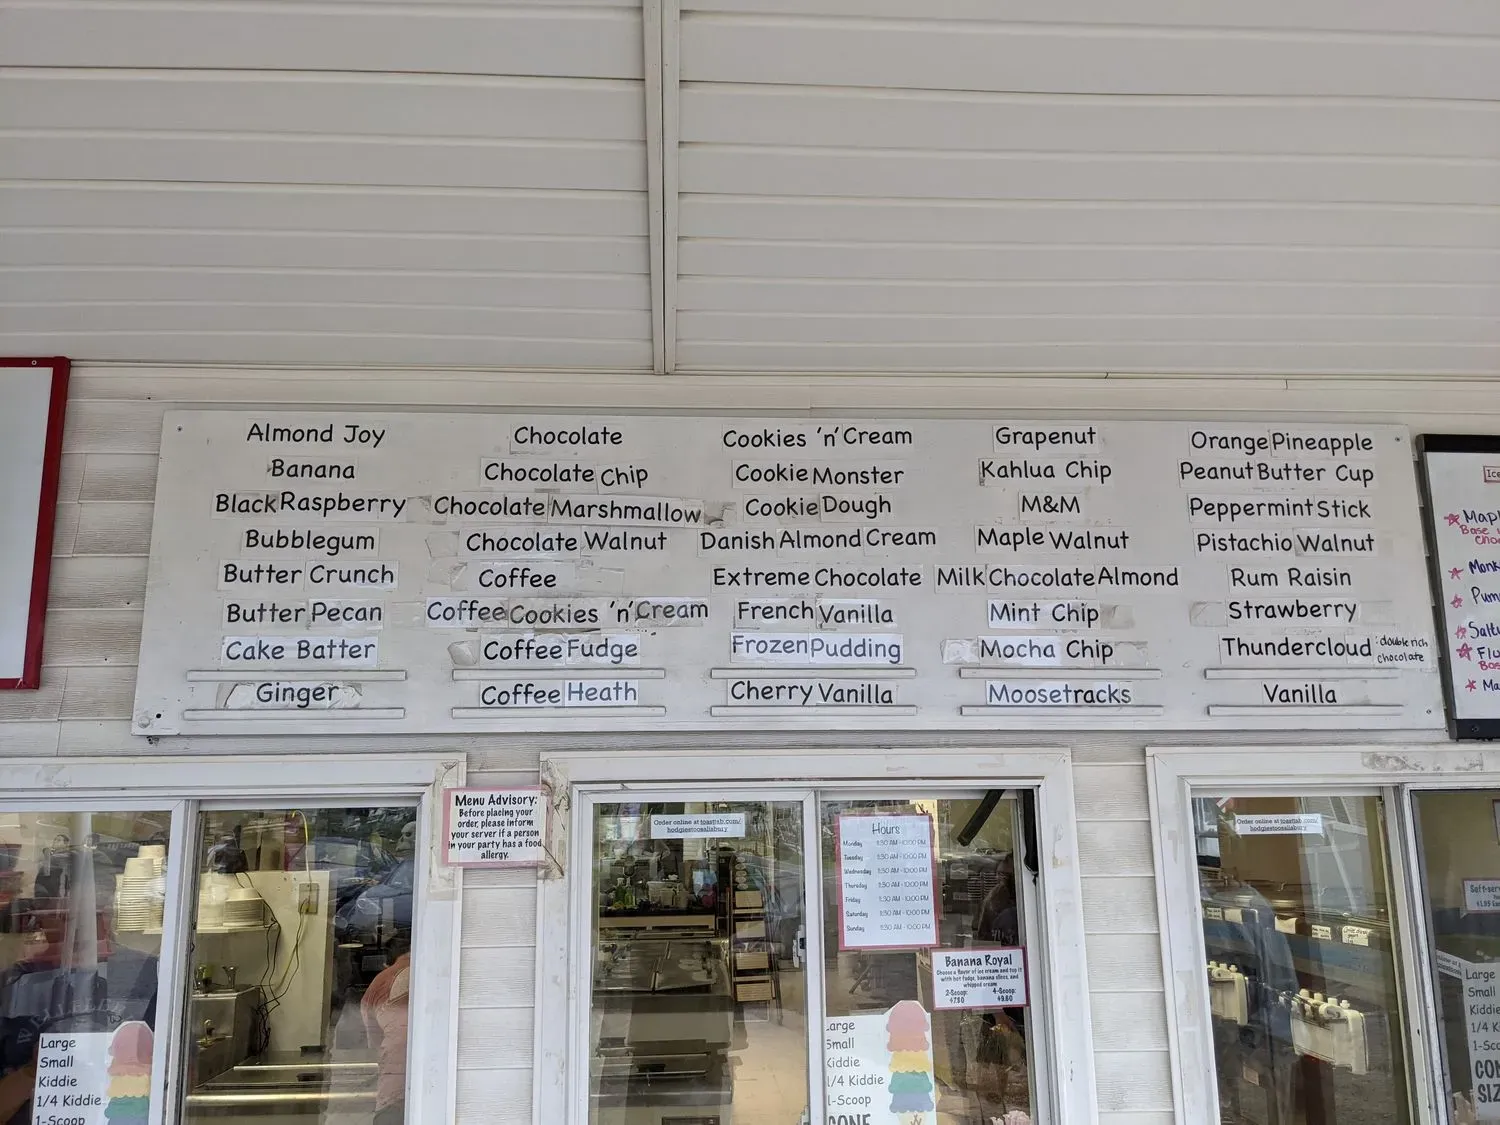 Almond Joy
Banana
Black Raspberry
Bubblegum
Butter Crunch
Butter Pecan
Cake Batter
Ginger
Chocolate
Chocolate Chip
Chocolate Marshmallow
Chocolate Walnut
Coffee
Coffee Cookies 'n' Cream
Coffee Fudge
Coffee Heath
Cookies 'n' Cream
Cookie Monster
Cookie Dough
Danish Almond Cream
Extreme Chocolate
French Vanilla
Frozen Pudding
Cherry Vanilla
Grapenut
Kahlua Chip
M&M
Maple Walnut
Milk Chocolate Almond
Mint Chip
Mocha Chip
Moosetracks
Orange Pineapple
Peanut Butter Cup
Peppermint Stick
Pistachio Walnut
Rum Raisin
Strawberry
Thundercloud : double rich
chocolate
Vanilla
Ice
Mapl
Base
Monk
Pum
Salty
Flu
Bas
Ma
Menu Advisory:
Before placing your
order, please inform
your server if a person
in your party has a food
allergy.
Order online at toasttab.com/
hodgiestoosalisbury
Hours
Monday 11:30 AM - 10:00 PM
Tuesday 11:30 AM - 10:00 PM
Wednesday 11:30 AM - 10:00 PM
Thursday 11:30 AM - 10:00 PM
Friday 11:30 AM - 10:00 PM
Saturday 11:30 AM - 10:00 PM
Sunday 11:30 AM - 10:00 PM
Banana Royal
Choose a flavor of ice cream and top it
with hot fudge, banana slices, and
whipped cream
2-Scoop: 4-Scoop:
$7.80 $9.80
Order online at toasttab.com/
hodgiestoosalisbury
Self-serv
Large
Small
Kiddie
1/4 Kiddie
1-Scoop
Large
Small
Kiddie
1/4 Kiddie
1-Scoop
CONE
Large
Small
Kiddie
1/4 K
1-Sco
CON
SIZ